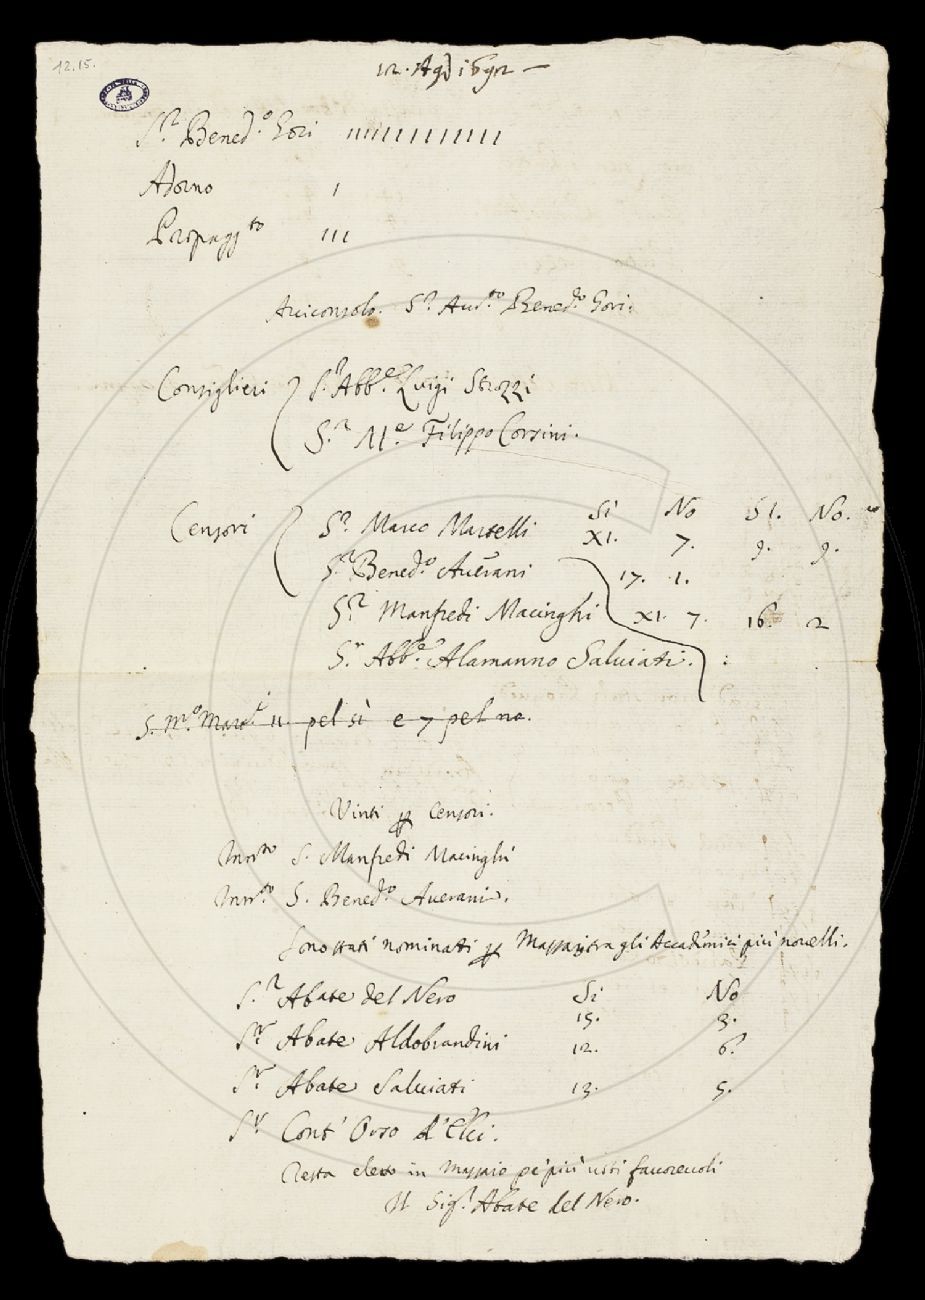 12.15.
12. Ag.º 1692 —
S.r Bened.º Gori ııııııııııııı
Adorno ı
Propagg.to ııı
Arciconsolo. S.r Aud.re Bened.º Gori.
Consiglieri S.r Abb.e Luigi Strozzi
S.r M.e Filippo Corsini.
Sì No SI. No.
Censori S.r Marco Martelli XI. 7. 9. 9.
S.r Bened.º Auerani 17. 1.
S.r Manfredi Macinghi XI. 7. 16. 2
S.r Abb.e Alamanno Saluiati.
S. M.º Marc 11. pel sì e 7 pel no.
Vinti Censori.
S. Manfredi Macinghi
S. Bened.º Auerani.
Sono stati nominati Massaj tra gli Accademici più nouelli.
S.r Abate del Nero Si No
15. 3.
S.r Abate Aldobrandini 12. 6.
S.r Abate Saluiati 13. 5.
S.r Cont' Orso d'Elci.
Resta eletto in Massaio pe' più uoti fauoreuoli
Il Sig.r Abate del Nero.